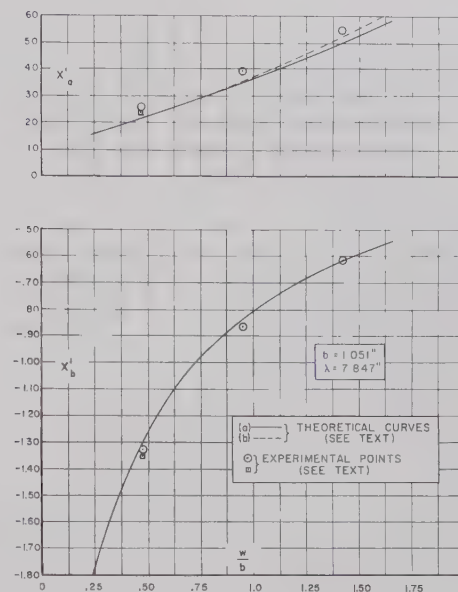 60
50
X'a
40
30
20
10
0
-.50
-.60
-.70
-.80
-.90
X'b
-1.00
-1.10
-1.20
-1.30
-1.40
-1.50
-1.60
-1.70
-1.80
b = 1.051"
λ = 7.847"
(a) } THEORETICAL CURVES
(b) (SEE TEXT)
} EXPERIMENTAL POINTS
(SEE TEXT)
0 .25 .50 .75 w/b 1.0 1.25 1.50 1.75 2.0